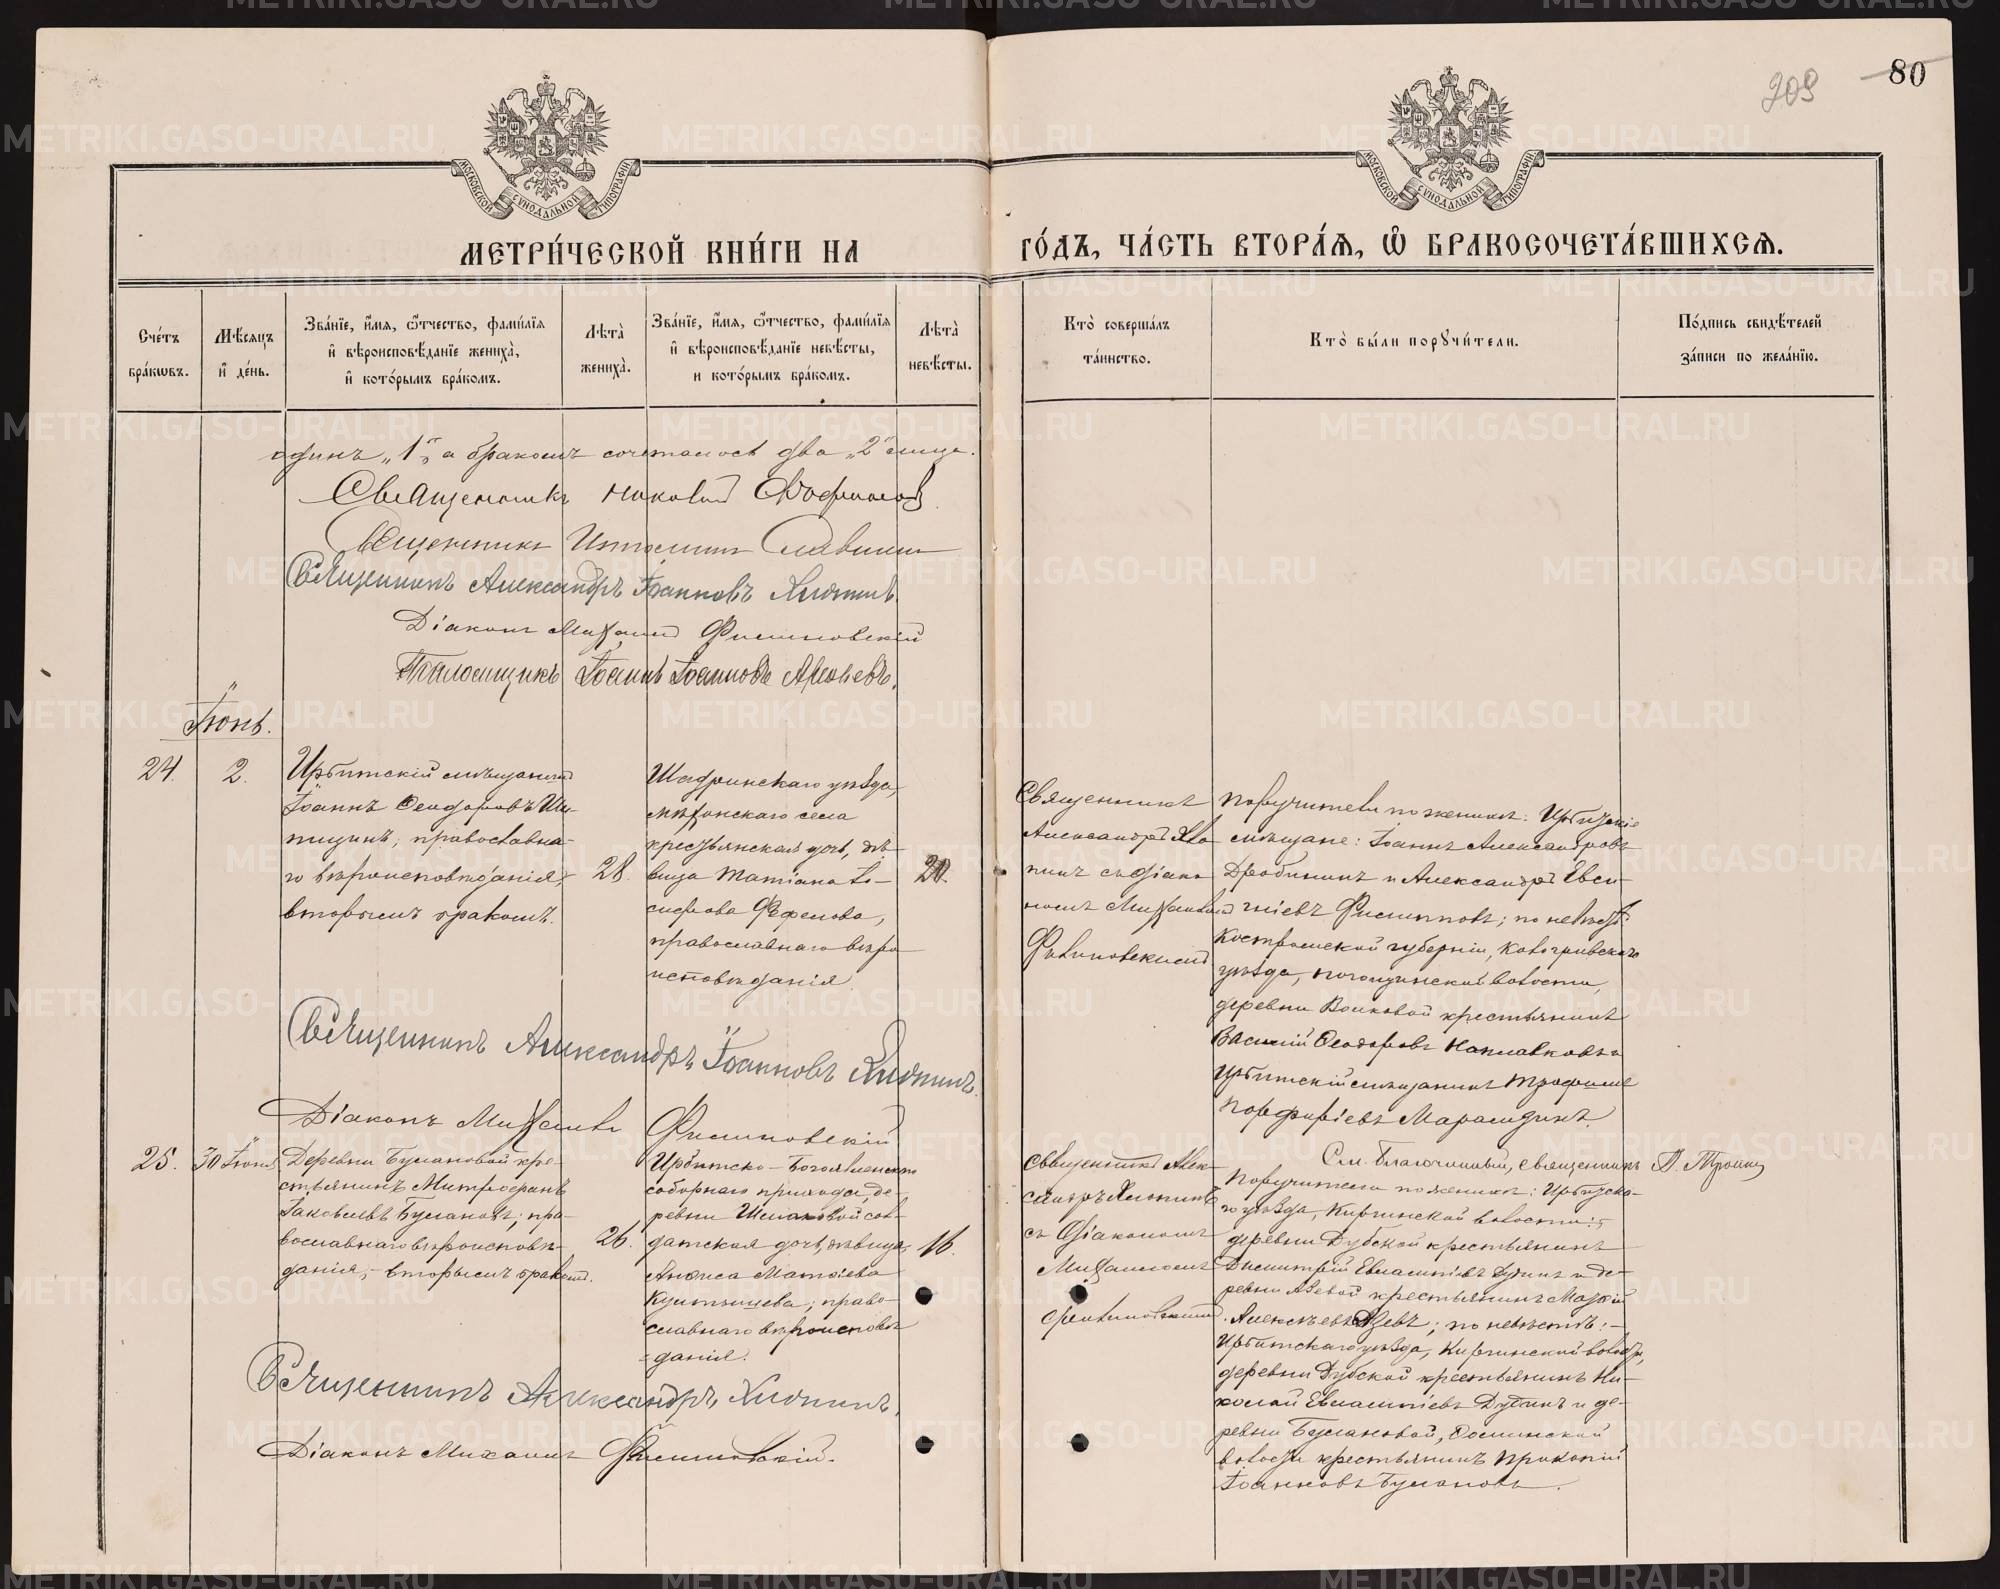 80
209
МОСКОВСКОЙ СУНОДАЛЬНОЙ ТИПОГРАФІИ
МОСКОВСКОЙ СУНОДАЛЬНОЙ ТИПОГРАФІИ
МЕТРИ́ЧЕСКОЙ КНИ́ГИ НА
ГО́ДЪ, ЧА́СТЬ ВТОРА́Я, Ѽ БРАКОСОЧЕТА́ВШИХСЯ.
Сче́тъ бра́кѡвъ.
Мѣ́сяцъ и҆ де́нь.
Зва́нїе, и҆́мя, ѻ҆́тчество, фами́лїя
и҆ вѣроисповѣ́данїе жениха̀,
и҆ кото́рымъ бра́комъ.
Лѣ́та̀ жениха̀.
Зва́нїе, и҆́мя, ѻ҆́тчество, фами́лїя
и҆ вѣроисповѣ́данїе невѣ́сты,
и кото́рымъ бра́комъ.
Лѣ́та̀ невѣ́сты.
Кто̀ соверша́лъ
та́инство.
Кто̀ бы́ли порꙋчи́тели.
По́дпись свидѣ́телей
за́писи по жела́нїю.
одинъ „1", а бракомъ сочеталось два „2" лица.
Священникъ
Священникъ
Священникъ Александръ Іоанновъ Хлопинъ.
Діаконъ Михаилъ Филиновскій
Псаломщикъ Іоаннъ Іоанновъ
Іюнь.
24.
2.
Ирбитскій мѣщанинъ
Іоаннъ Ѳеодоровъ Ши-
пицинъ, православна-
го вѣроисповѣданія,
вторымъ бракомъ.
28.
Шадринскаго уѣзда,
села
крестьянская дочь, дѣ-
вица Татіана Іо-
сифова Фефелова,
православнаго вѣро
исповѣданія.
20.
Священникъ
Александръ Хло
пинъ съ діако
номъ Михаиломъ
Филиновскимъ
Поручители по женихѣ: Ирбитскіе
мѣщане: Іоаннъ Александровъ
Дробининъ и Александръ Евси
гніевъ Филипповъ; по невѣстѣ:
Костромской губерніи, Кологривскаго
уѣзда, волости,
деревни крестьянинъ
Василій Ѳеодоровъ и
Ирбитскій мѣщанинъ Трофимъ
Порфиріевъ
Священникъ Александръ Іоанновъ Хлопинъ.
Діаконъ Михаилъ Филиновскій
25.
30 Іюня
Деревни Булановой кре-
стьянинъ Митрофанъ
Іаковлевъ Булановъ; пра-
вославнаго вѣроисповѣ-
данія, – вторымъ бракомъ.
26.
Ирбитско-Богоявленскаго
соборнаго прихода, де-
ревни Шмаковой сол-
датская дочь, дѣвица
Анѳиса Матѳіева
право-
славнаго вѣроисповѣ
-данія.
16.
Священникъ Алек-
сандръ Хлопинъ
съ діакономъ
Михаиломъ
Филиновскимъ
См. Благочинный, священникъ
Поручители по женихѣ: Ирбитска-
го уѣзда, Киргинской волости:–
деревни Дубской крестьянинъ
Дмитрій Евлампіевъ Дубинъ и де-
ревни Азевой крестьянинъ
Алексѣевъ Азевъ; по невѣстѣ:–
Ирбитскаго уѣзда, Киргинской волости,
деревни Дубской крестьянинъ Ни-
колай Евлампіевъ Дубинъ и де-
ревни Булановой,
волости крестьянинъ Прокопій
Іоанновъ Булановъ.
Священникъ Александръ Хлопинъ.
Діаконъ Михаилъ Филиновскій.
METRIKI.GASO-URAL.RU